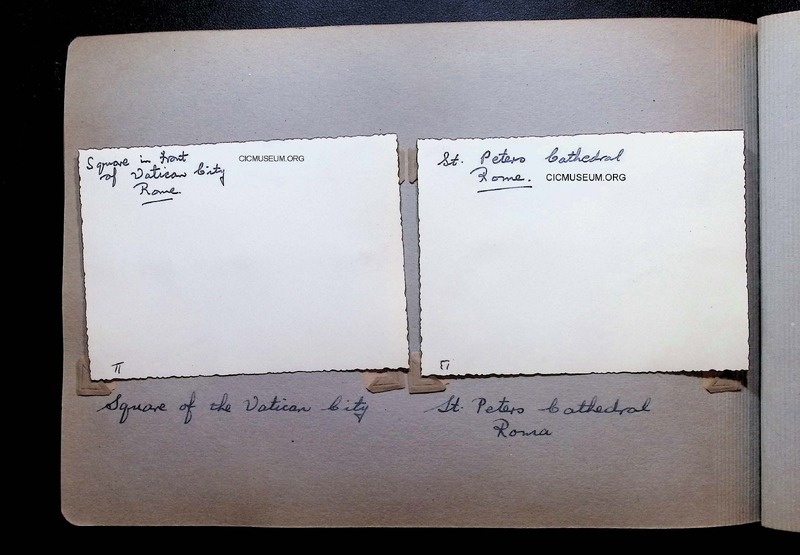 Square in Front
of Vatican City
Rome.
CICMUSEUM.ORG
St. Peters Cathedral
Rome.
CICMUSEUM.ORG
Square of the Vatican City
St. Peters Cathedral
Roma